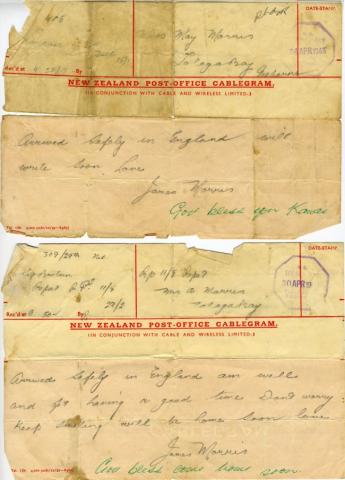 408
DATE-STAMP.
Miss May Morris
Tolaga Bay
Rec'd at
By
NEW ZEALAND POST-OFFICE CABLEGRAM.
(IN CONJUNCTION WITH CABLE AND WIRELESS LIMITED.)
Arrived safely in England will
write soon. Love
James Morris
God bless
309/29th
DATE-STAMP.
11/8
Mrs A Morris
29/2
Tolaga Bay
Rec'd at
By
30 APR 19
NEW ZEALAND POST-OFFICE CABLEGRAM.
(IN CONJUNCTION WITH CABLE AND WIRELESS LIMITED.)
Arrived safely in England am well
and having a good time Dont worry
Keep smiling will be home soon love
James Morris
God bless come home soon